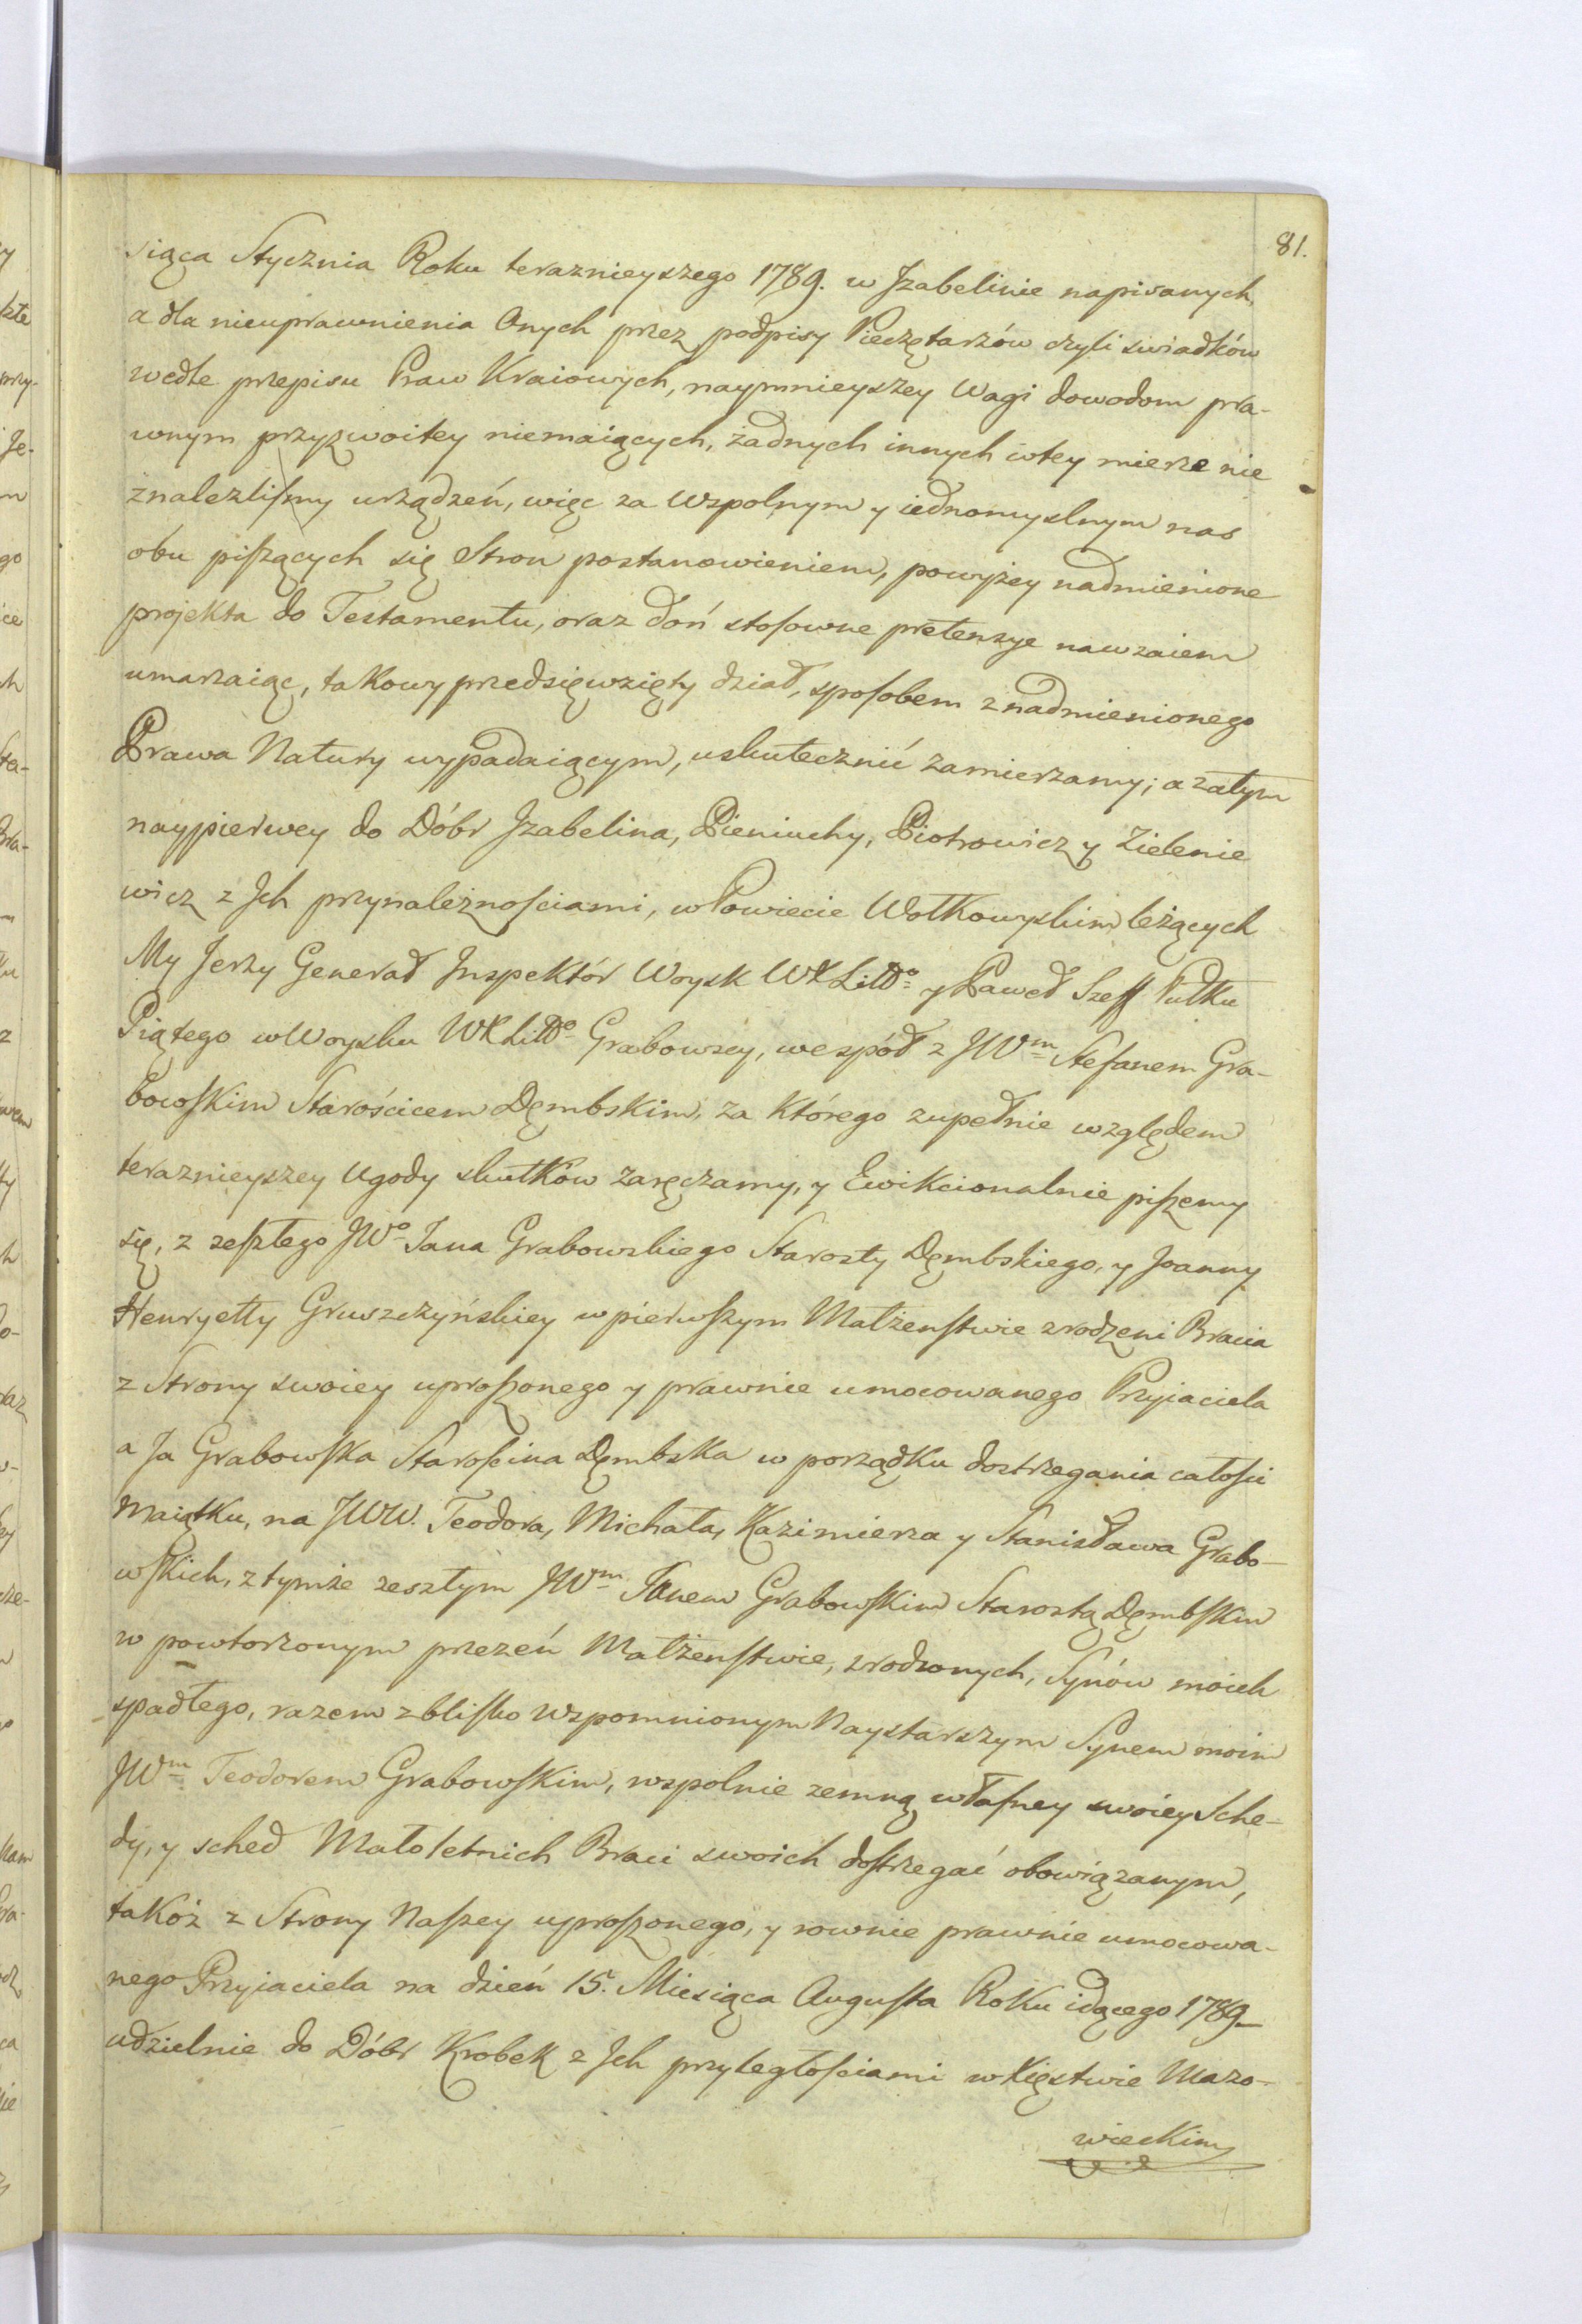 81.
siąca Stycznia Roku teraznieyszego 1789. w Jzabelinie napisanych,
a dla nieuprawnienia Onych przez podpisy Pieczętarzów czyli swiadków
wedle przepisu Praw Kraiowych, naymnieyszey Wagi dowodom pra-
wnym przyzwoitey niemaiących, żadnych innych wtey mierze nie
znalezliſmy urządzeń, więc za wspolnym y iednomyslnym nas
obu piſzących się Stron postanowieniem, powyżey nadmienione
projekta do Testamentu, oraz doń stoſowne pretensye nawzaiem
umarzaiąc, takowy przedsięwzięty dział, sposobem z nadmienionego
Prawa Natury wypadaiącym, uskutecznić zamierzamy; a zatym
naypierwey do Dóbr Jzabelina, Pieniuchy, Piotrowicz y Zielenie
wicz z Jch przynależnoſciami, w Powiecie Wołkowyskim leżących
My Jerzy Generał Jnspektór Woysk WX Littº y Paweł Szeff Pułku
Piątego w Woysku WX Littº Grabowscy, wespół z JWm Stefanem Gra-
bowſkim Starościcem Dęmbskim, za którego zupełnie względem
teraznieyszey Ugody skutków zaręczamy, y Ewikcionalnie piſzemy
się, z zeſzłego JWº Jana Grabowskiego Starosty Dęmbskiego, y Joanny
Henryetty Gruszczyńskiey w pierwſzym Małżenſtwie zrodzeni Bracia
z Strony swoiey uproſzonego y prawnie umocowanego Przyiaciela
a Ja Grabowſka Staroſcina Dęmbska w porządku dostrzegania całoſci
Maiątku, na JWW. Teodora, Michała, Kazimierza y Stanisława Grabo-
wſkich, z tymże zeszłym JWm Janem Grabowſkim Starostą Dęmbſkim
w powtorzonym przezeń Małżenſtwie, zrodzonych, Synów moich
spadłego, razem z bliſko wspomnionym Naystarszym Synem moim
JWm Teodorem Grabowſkim, wspolnie zemną własney swoiey Sche-
dy, y sched Małoletnich Braci swoich dostrzegać obowiązanym,
takoż z Strony Naſzey uproſzonego, y rownie prawnie umocowa-
nego Przyiaciela na dzień 15. Miesiąca Auguſta Roku idącego 1789
udzielnie do Dóbr Krobek z Jch przyległoſciami w Xięstwie Mazo-
wieckim